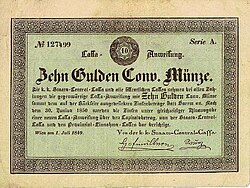 № 127499 Serie A.
Cassa- Anweisung.
Zehn Gulden Conv. Münze.
Die k. k. Staats-Central-Cassa und alle öffentlichen Cassen nehmen bei allen Zah-
lungen die gegenwärtige Cassa-Anweisung mit Zehn Gulden Conv. Münze
dem auf der Rückseite ausgedrückten Zinsenbetrage statt Barem an. Nach
dem 30. Juni 1850 werden die Zinsen unter gleichzeitiger Hinausgabe
einer neuen Cassa-Anweisung über den Capitalsbetrag, von der Staats-Central-
Cassa und den Provinzial-Einnahms-Cassen bar berichtigt.
Wien am 1. Juli 1849. Von der k. k. Staats-Central-Cassa.